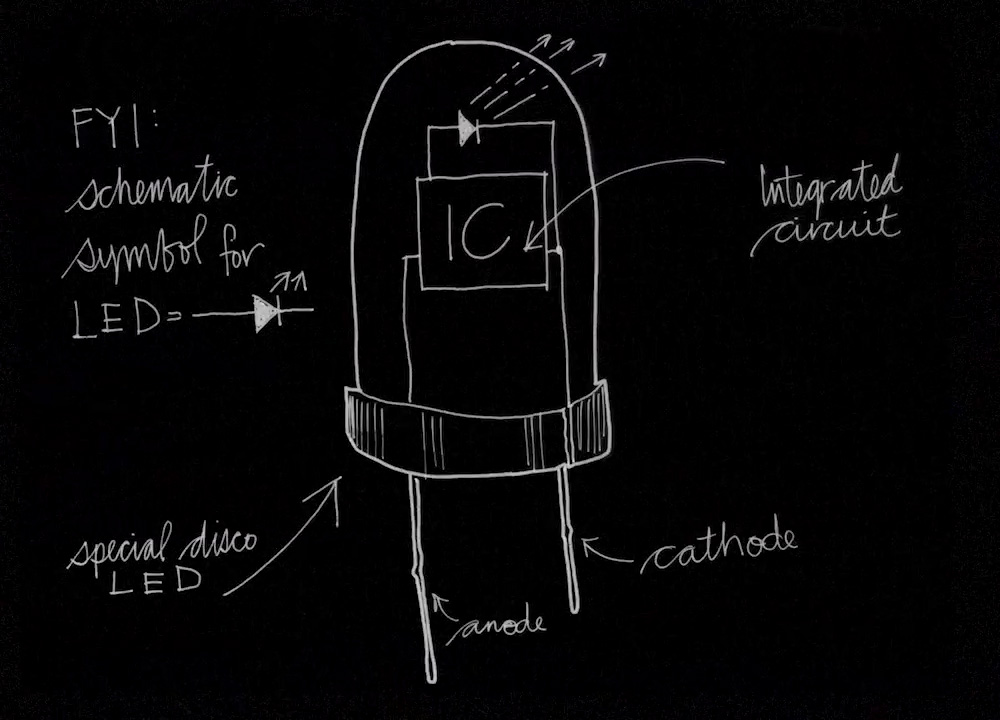 FYI:
schematic
symbol for
LED=
IC
Integrated
circuit
special disco
LED
cathode
anode